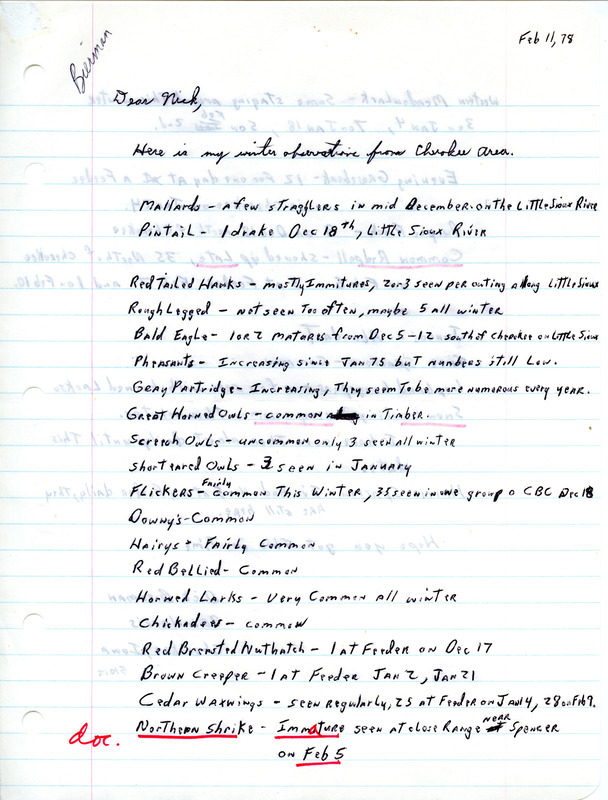 Feb 11, 78
Bierman
Dear Nick,
Here is my winter observations from Cherokee area.
Mallards - a few stragglers in mid December on the Little Sioux River
Pintail - 1 drake Dec 18th, Little Sioux River
Red Tailed Hawks - mostly Immitures, 2 or 3 seen per outing along Little Sioux
Rough Legged - not seen Too often, maybe 5 all winter
Bald Eagle - 1 or 2 matures from Dec 5-12 south of Cherokee on Little Sioux
Pheasants - Increasing since JAN 75 but numbers still Low.
Gray Partridge - Increasing, They seem To be more numerous every year.
Great Horned Owls - common in Timber.
Screech Owls - uncommon only 3 seen all winter
Short eared Owls - 3 seen in January
Flickers - Fairly common This Winter, 35 seen in one group o CBC Dec 18
Downy's - Common
Hairys - Fairly Common
Red Bellied - Common
Horned Larks - Very Common All winter
Chickadees - common
Red Brersted Nuthatch - 1 at Feeder on Dec 17
Brown Creeper - 1 at Feeder Jan 2, Jan 21
Cedar Waxwings - seen Regularly, 25 at Feeder on Jan 14, 28 on Feb 9.
Northern Shrike - Immature seen at close Range NEAR Spencer
doc.
on Feb 5